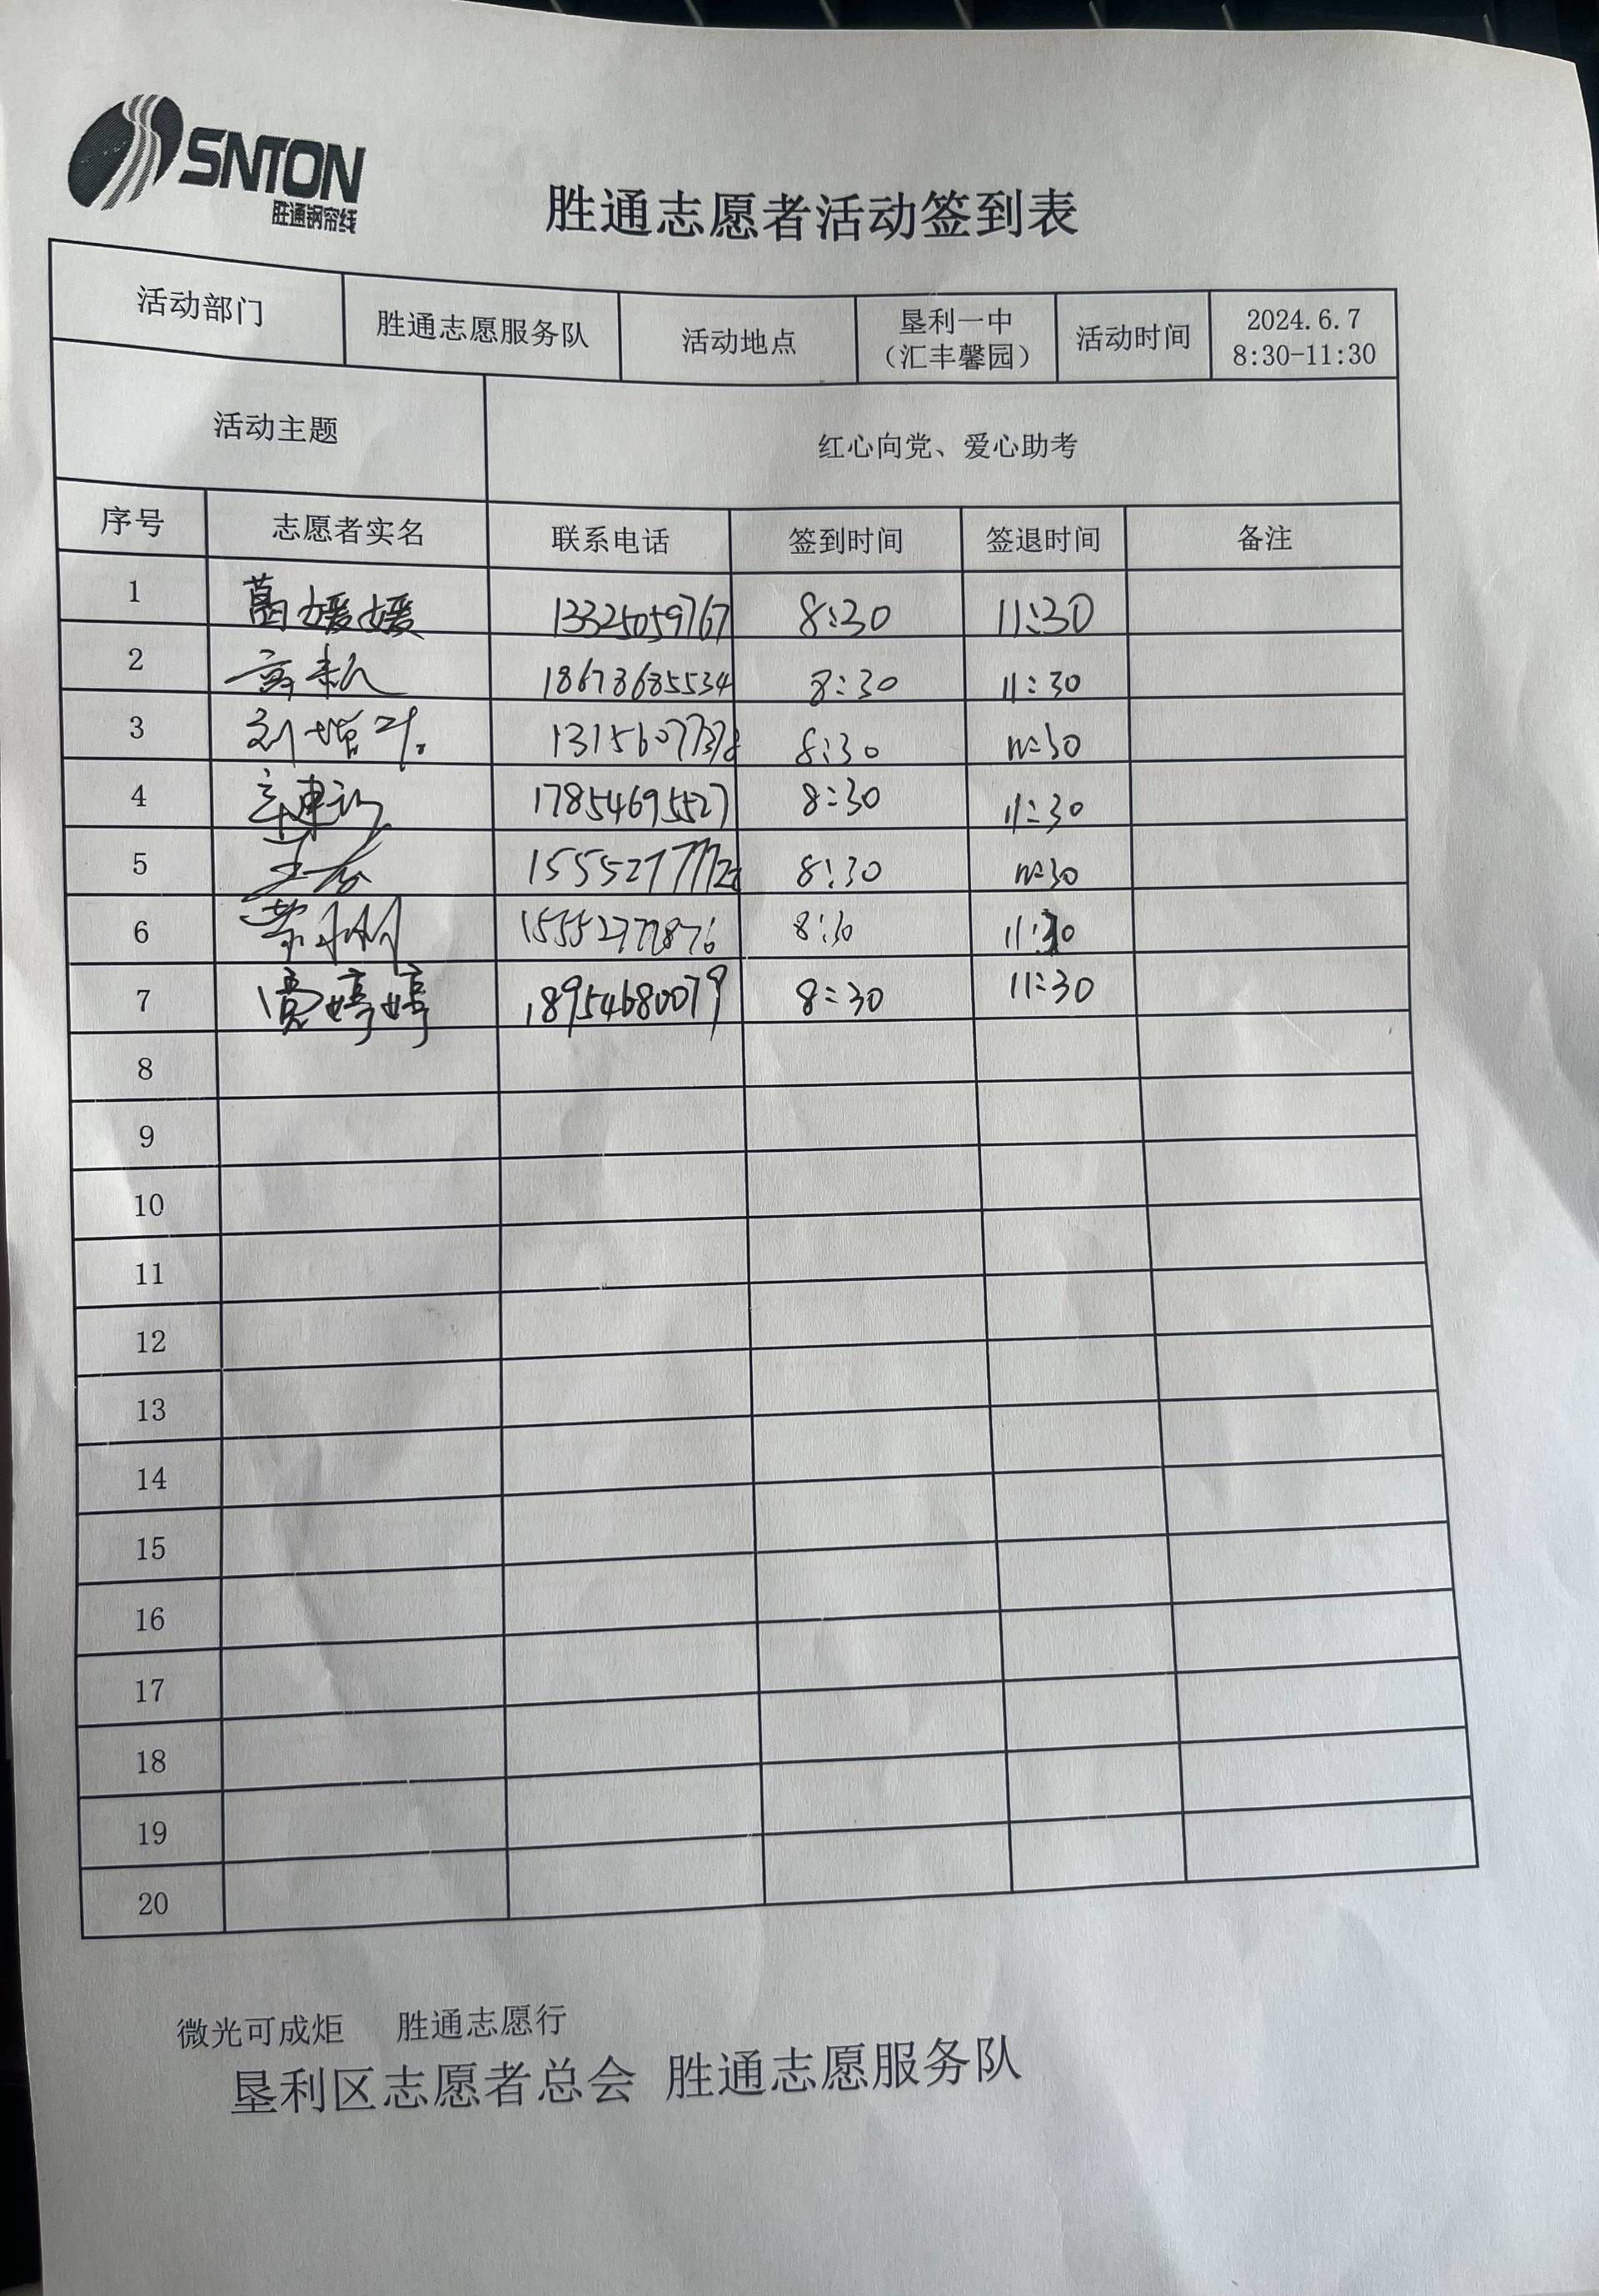 SNTON
胜通钢帘线
胜通志愿者活动签到表
活动部门 胜通志愿服务队 活动地点 垦利一中（汇丰馨园） 活动时间 2024.6.7 8:30-11:30
活动主题 红心向党、爱心助考
序号 志愿者实名 联系电话 签到时间 签退时间 备注
1 葛媛媛 13325059767 8:30 11:30
2 18678685534 8:30 11:30
3 刘增 8:30 11:30
4 17854695527 8:30 11:30
5 8:30 11:30
6 15552777876 8:30 11:30
7 婷婷 18954680079 8:30 11:30
8
9
10
11
12
13
14
15
16
17
18
19
20
微光可成炬 胜通志愿行
垦利区志愿者总会 胜通志愿服务队